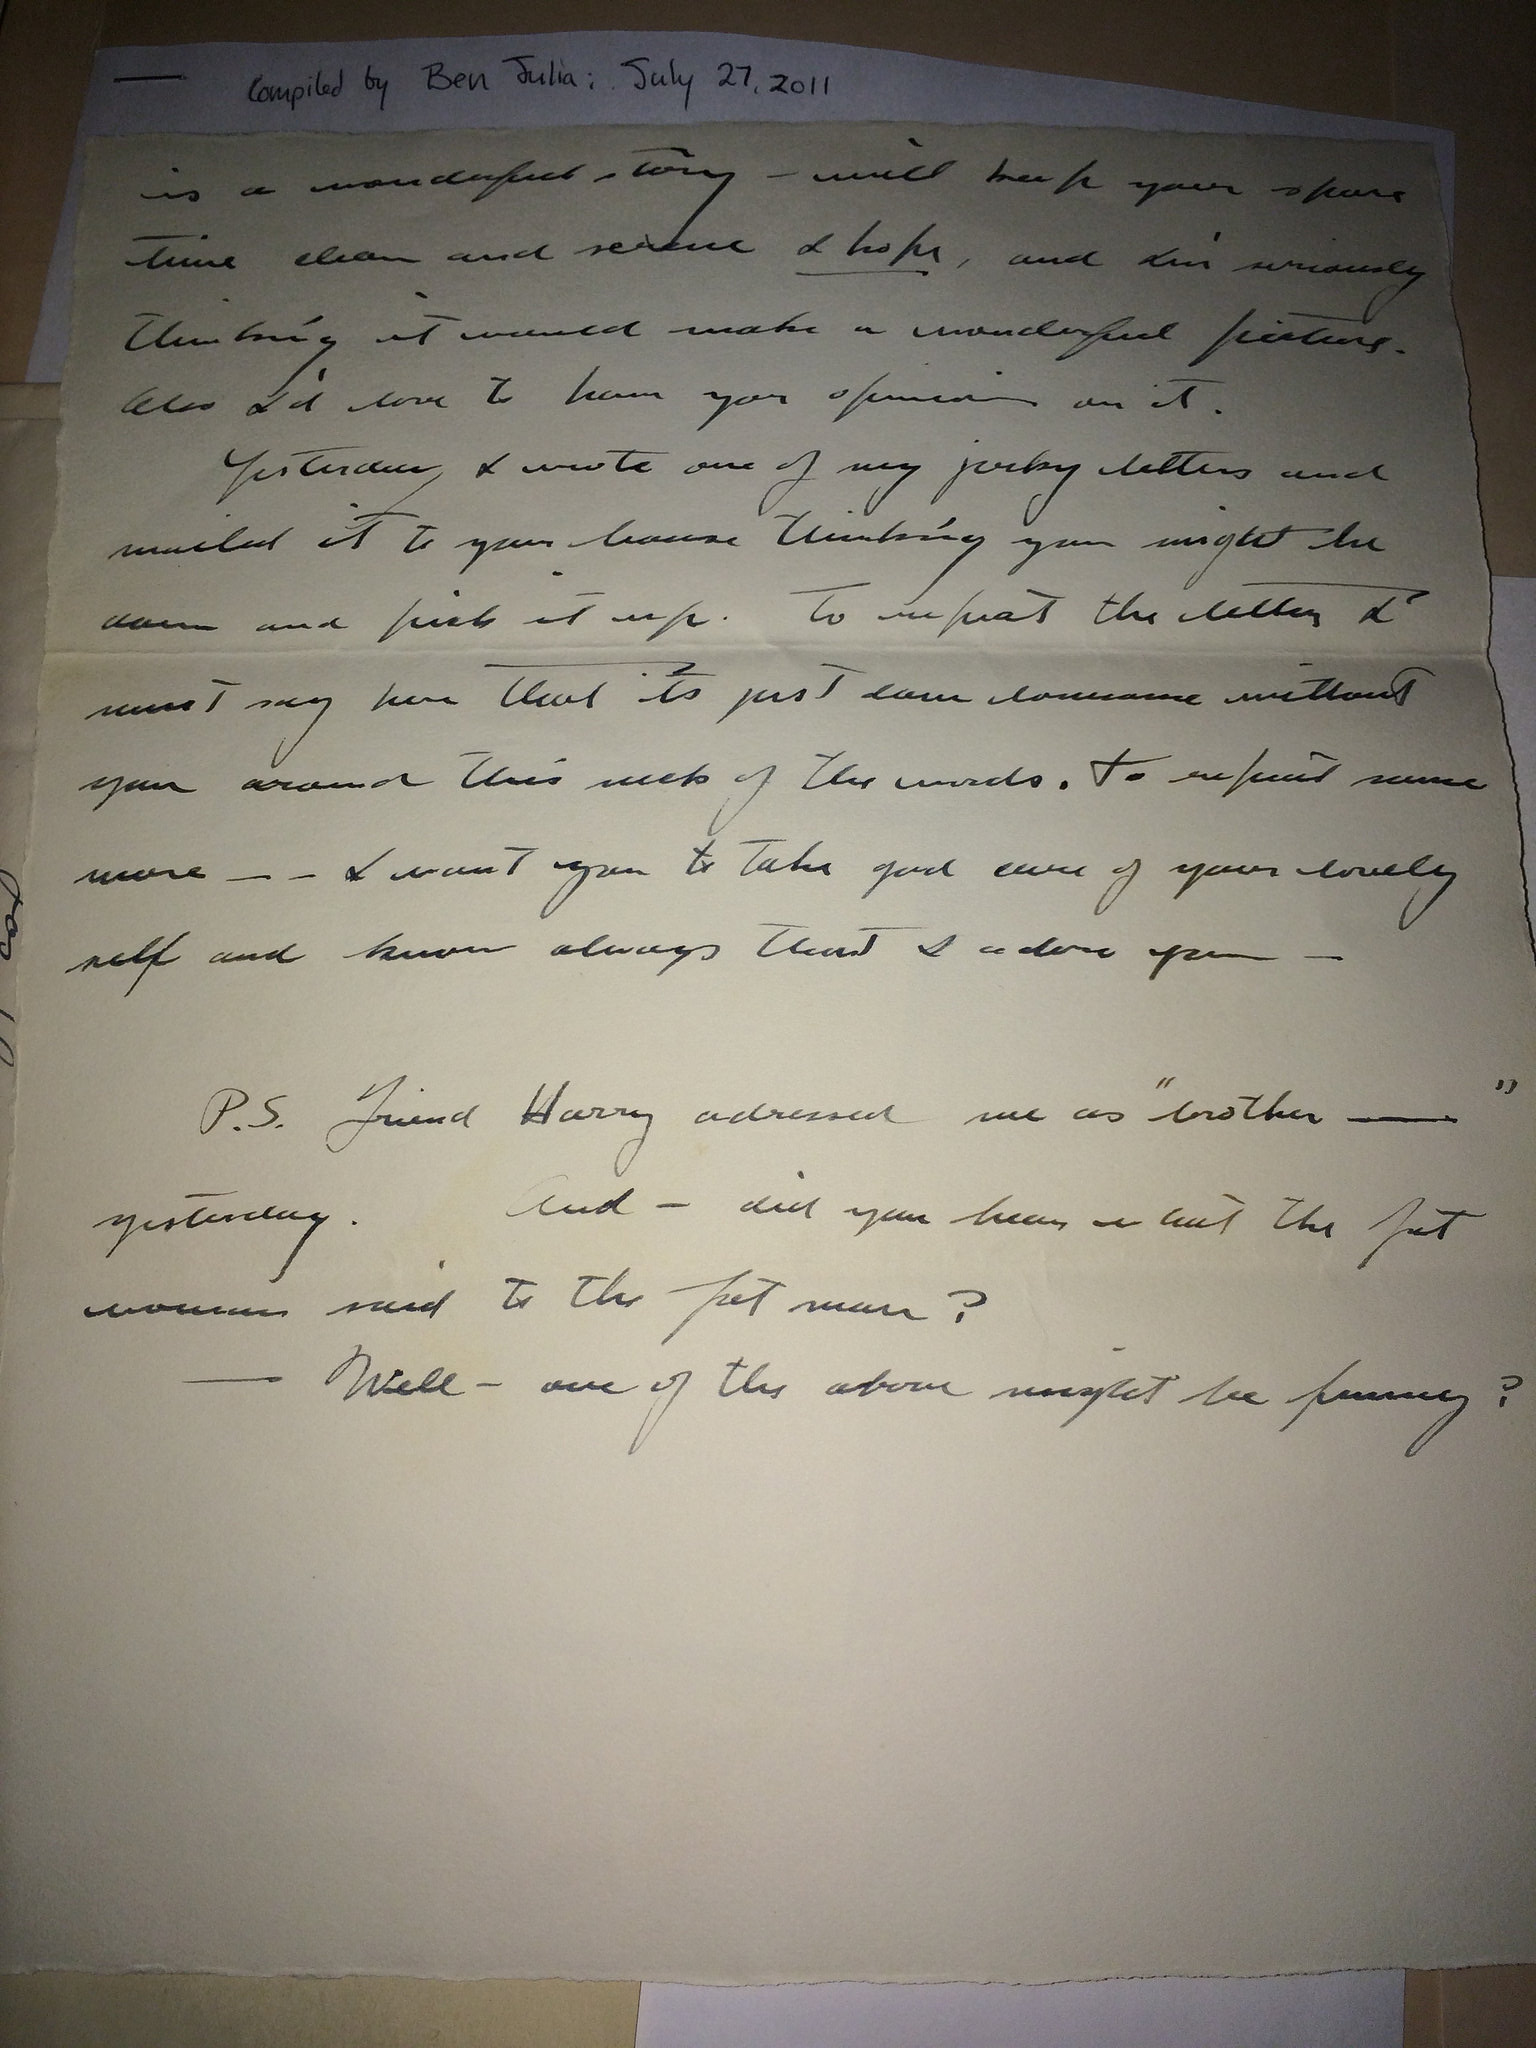 — Compiled by Ben Julia: July 27, 2011
is a wonderful story – will keep your spare
time clean and serene I hope, and I'm seriously
thinking it would make a wonderful picture.
Also I'd love to have your opinion on it.
Yesterday I wrote one of my jerky letters and
mailed it to your house thinking you might be
down and pick it up. To repeat the letter, I
must say here that it's just darn lonesome without
you around this neck of the woods. To repeat some
more -- I want you to take good care of your lovely
self and know always that I adore you –
P.S. Friend Harry adressed me as "brother — "
yesterday. And – did you hear what the fat
woman said to the fat man?
— Well – one of the above might be funny?